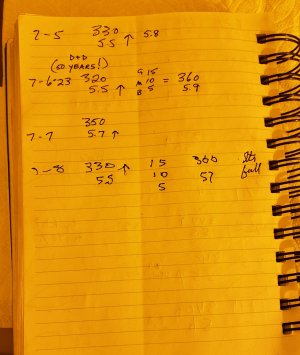 7-5 330 5.5 ↑ 5.8
D+D
(50 YEARS!)
7-6-23 320 5.5 ↑ G 15 M 10 B 5 = 360 5.9
350
7-7 5.7 ↑
7-8 330 ↑ 15 300
5.5 10 57 full
5